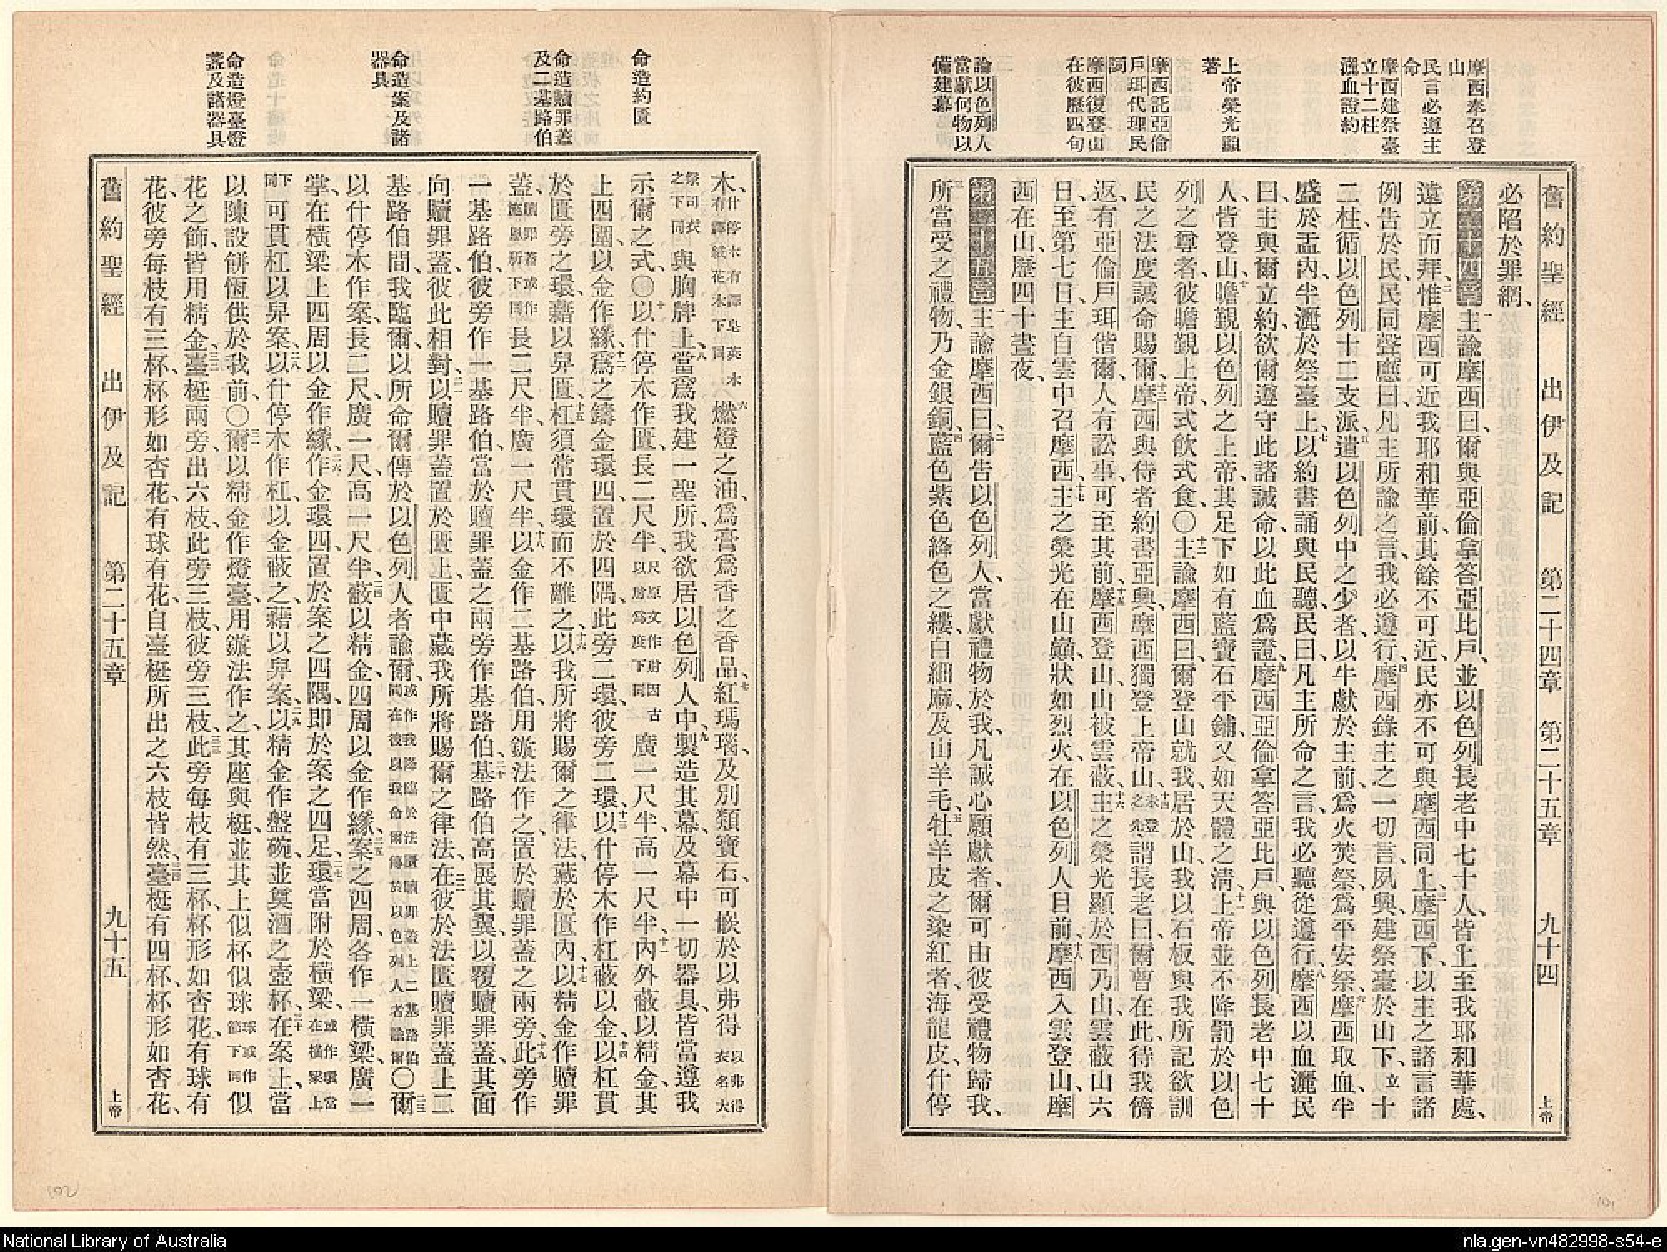 舊約聖經 出伊及記 第二十四章 第二十五章 九十四 上帝
摩西奉召登
山
民言必遵主
命
摩西建祭臺
立十二柱
灑血證約
上帝榮光顯
著
摩西託亞倫
戶珥代理民
詞
摩西復登山
在彼歷四旬
諭以色列人
當獻何物以
備建幕
必陷於罪網、
第二十四章 一主諭摩西曰、爾與亞倫拿答亞比戶、並以色列長老中七十人、皆上至我耶和華處、
遠立而拜、二惟摩西可近我耶和華前、其餘不可近、民亦不可與摩西同上、三摩西下、以主之諸言諸
例告於民、民同聲應曰、凡主所諭之言、我必遵行、四摩西錄主之一切言、夙興建祭臺於山下、立十
二柱、循以色列十二支派、五遣以色列中之少者、以牛獻於主前、爲火焚祭、爲平安祭、六摩西取血半
盛於盂內、半灑於祭臺上、七以約書誦與民聽、民曰、凡主所命之言、我必聽從遵行、八摩西以血灑民
曰、主與爾立約、欲爾遵守此諸誡命、以此血爲證、九摩西亞倫拿答亞比戶、與以色列長老中七十
人皆登山、十瞻覲以色列之上帝、其足下如有藍寶石平鋪、又如天體之清、十一上帝並不降罰於以色
列之尊者、彼瞻覲上帝、式飲式食、〇十二主諭摩西曰、爾登山就我、居於山、我以石板與我所記欲訓
民之法度誡命賜爾、十三摩西與侍者約書亞興、摩西獨登上帝山、十四未登之先謂長老曰、爾曹在此、待我儕
返、有亞倫戶珥偕爾、人有訟事、可至其前、十五摩西登山、山被雲蔽、十六主之榮光顯於西乃山、雲蔽山六
日、至第七日、主自雲中召摩西、十七主之榮光在山巔、狀如烈火、在以色列人目前、十八摩西入雲登山、摩
西在山、歷四十晝夜、
第二十五章 一主諭摩西曰、二爾告以色列人、當獻禮物於我、凡誠心願獻者、爾可由彼受禮物歸我、
三所當受之禮物、乃金銀銅、四藍色紫色絳色之縷、白細麻、及山羊毛、五牡羊皮之染紅者、海龍皮、什停
命造約匱
命造贖罪蓋
及二基路伯
命造案及諸
器具
命造燈臺燈
盞及諸器具
木、什停木有譯皂莢木有譯紱花木下同六燃燈之油、爲膏爲香之香品、七紅瑪瑙、及別類寶石、可嵌於以弗得以弗得衣名大
祭司衣之下同與胸牌上、八當爲我建一聖所、我欲居以色列人中、九製造其幕、及幕中一切器具、皆當遵我
示爾之式、〇十以什停木作匱、長二尺半、尺原文作肘因古以肘爲度下同廣一尺半、高一尺半、十一內外蔽以精金、其
上四圍以金作緣、十二爲之鑄金環四、置於四隅、此旁二環、彼旁二環、十三以什停木作杠、蔽以金、十四以杠貫
於匱旁之環、藉以舁匱、十五杠須常貫環而不離之、十六以我所將賜爾之律法、藏於匱內、十七以精金作贖罪
蓋、贖罪蓋或作施恩所下同長二尺半、廣一尺半、十八以金作二基路伯、用鏇法作之、置於贖罪蓋之兩旁、十九此旁作
一基路伯、彼旁作一基路伯、當於贖罪蓋之兩旁作基路伯、二十基路伯高展其翼、以覆贖罪蓋、其面
向贖罪蓋、彼此相對、二一以贖罪蓋置於匱上、匱中藏我所將賜爾之律法、二二在彼於法匱贖罪蓋上二
基路伯間、我臨爾、以所命爾傳於以色列人者諭爾、或作我降臨於法匱贖罪蓋上二基路伯間在彼以我命爾傳於以色列人者諭爾〇二三爾
以什停木作案、長二尺、廣一尺、高一尺半、二四蔽以精金、四周以金作緣、二五案之四周、各作一橫梁、廣一
掌、在橫梁上四周以金作緣、二六作金環四、置於案之四隅、即於案之四足、二七環當附於橫梁、或作環當在橫梁上
下同可貫杠以舁案、二八以什停木作杠、以金蔽之、藉以舁案、二九以精金作盤碗、並奠酒之壺杯、三十在案上當
以陳設餅恆供於我前、〇三一爾以精金作燈臺、用鏇法作之、其座與梃、並其上似杯似球球或作節下同似
花之飾、皆用精金、三二臺梃兩旁出六枝、此旁三枝、彼旁三枝、三三此旁每枝有三杯、杯形如杏花、有球有
花、彼旁每枝有三杯、杯形如杏花、有球有花、自臺梃所出之六枝皆然、三四臺梃有四杯、杯形如杏花、
舊約聖經 出伊及記 第二十五章 九十五 上帝
National Library of Australia
nla.gen-vn482998-s54-e